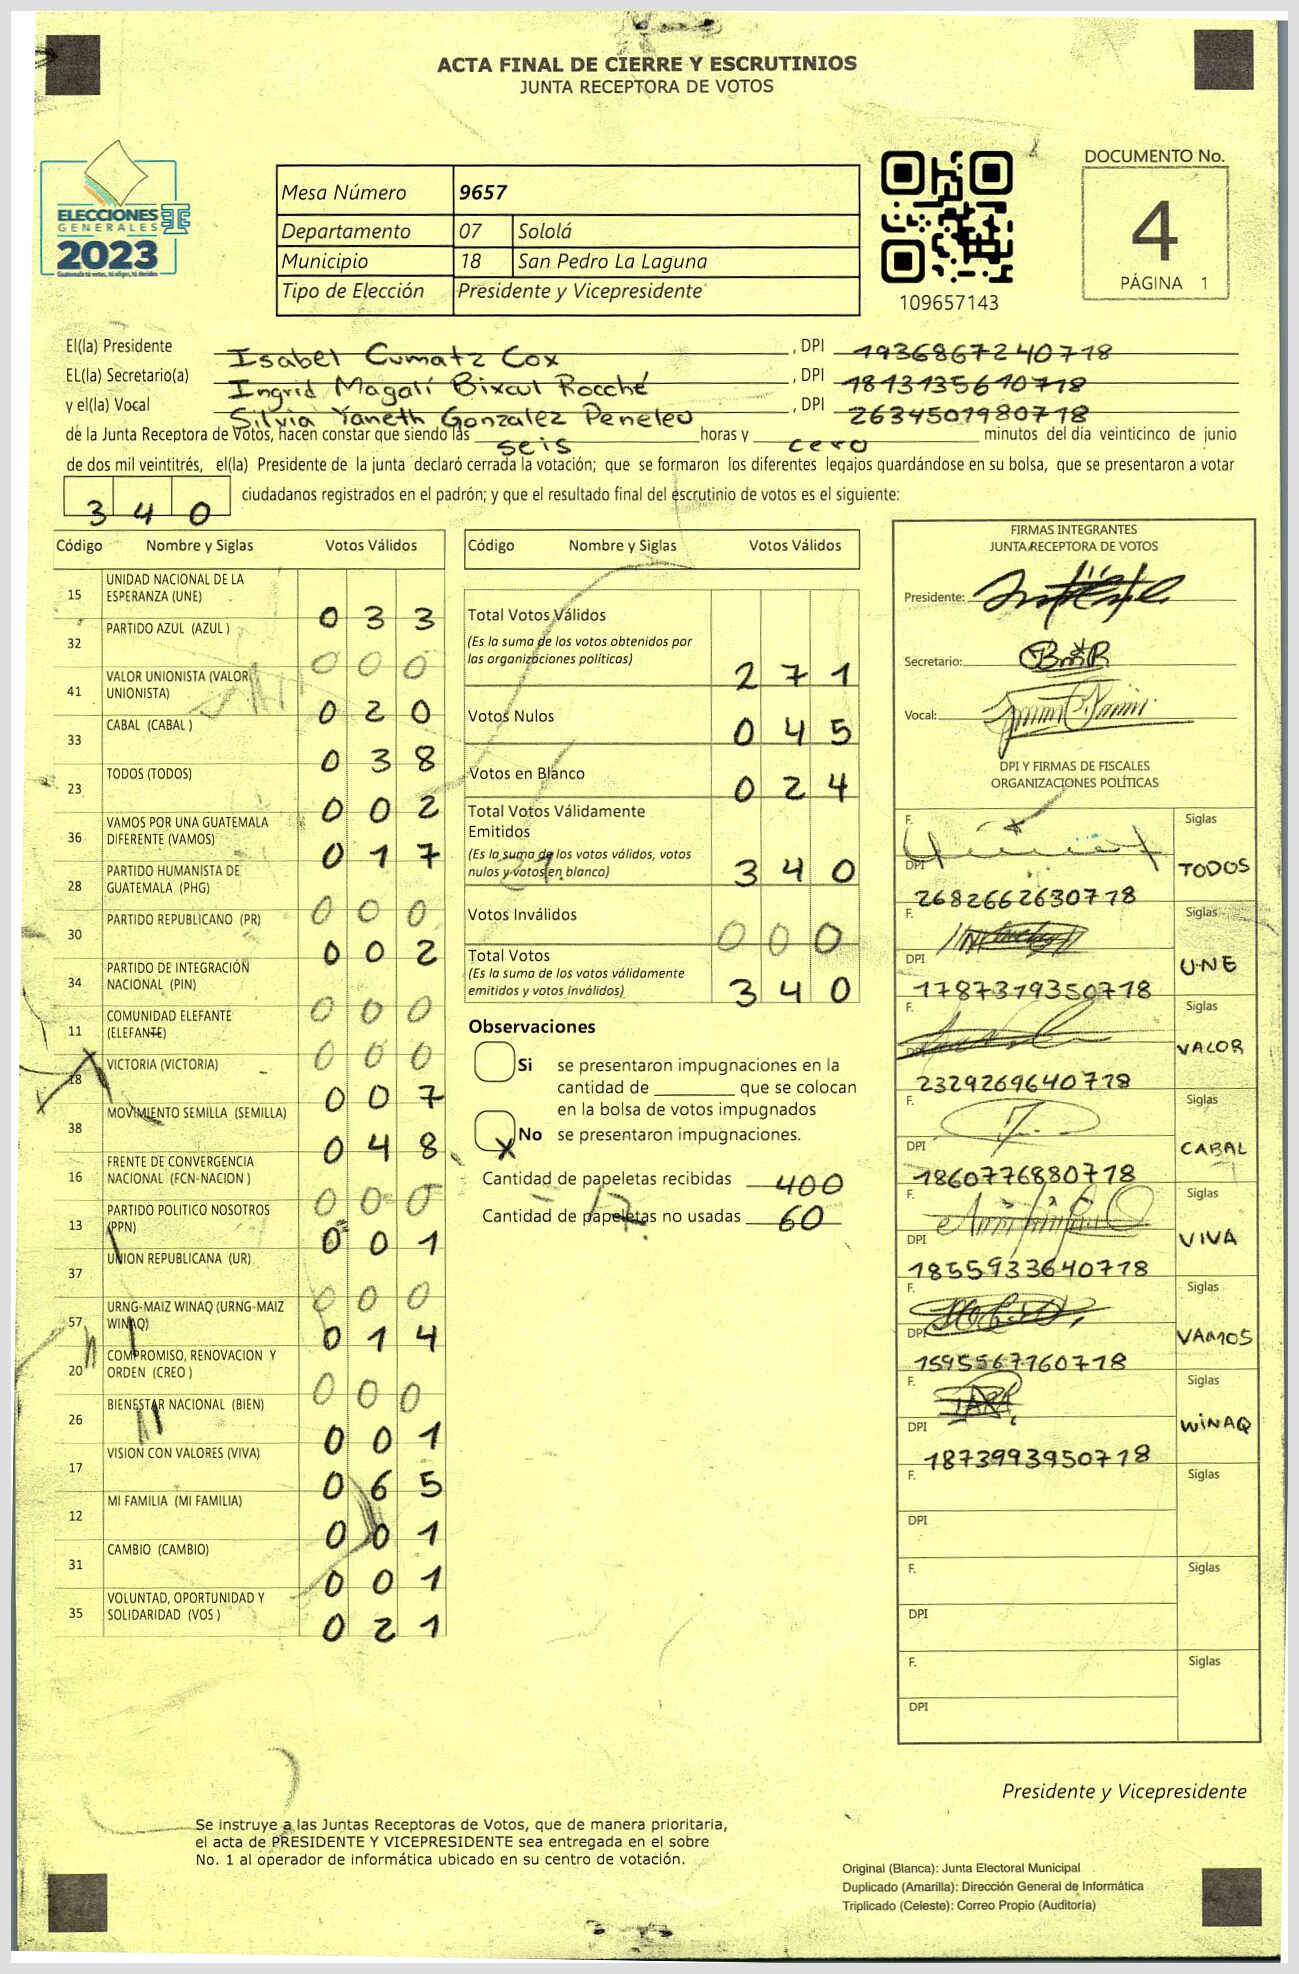 ACTA FINAL DE CIERRE Y ESCRUTINIOS
JUNTA RECEPTORA DE VOTOS
ELECCIONES
GENERALES
2023
Guatemala tú votas, tú eliges, tú decides
Mesa Número 9657
Departamento 07 Sololá
Municipio 18 San Pedro La Laguna
Tipo de Elección Presidente y Vicepresidente
109657143
DOCUMENTO No.
4
PÁGINA 1
El(la) Presidente Isabel Cumatz Cox , DPI 1936867240718
EL(la) Secretario(a) Ingrid Magalí Bixcul Rocché , DPI 1813135610718
y el(la) Vocal Silvia Yaneth Gonzalez Peneleu , DPI 2634501980718
de la Junta Receptora de Votos, hacen constar que siendo las seis horas y cero minutos del día veinticinco de junio
de dos mil veintitrés, el(la) Presidente de la junta declaró cerrada la votación; que se formaron los diferentes legajos guardándose en su bolsa, que se presentaron a votar
340 ciudadanos registrados en el padrón; y que el resultado final del escrutinio de votos es el siguiente:
Código Nombre y Siglas Votos Válidos
15 UNIDAD NACIONAL DE LA ESPERANZA (UNE) 033
32 PARTIDO AZUL (AZUL ) 000
41 VALOR UNIONISTA (VALOR UNIONISTA) 020
33 CABAL (CABAL ) 038
23 TODOS (TODOS) 002
36 VAMOS POR UNA GUATEMALA DIFERENTE (VAMOS) 017
28 PARTIDO HUMANISTA DE GUATEMALA (PHG) 000
30 PARTIDO REPUBLICANO (PR) 002
34 PARTIDO DE INTEGRACIÓN NACIONAL (PIN) 000
11 COMUNIDAD ELEFANTE (ELEFANTE) 000
18 VICTORIA (VICTORIA) 007
38 MOVIMIENTO SEMILLA (SEMILLA) 048
16 FRENTE DE CONVERGENCIA NACIONAL (FCN-NACION ) 000
13 PARTIDO POLITICO NOSOTROS (PPN) 001
37 UNION REPUBLICANA (UR) 000
57 URNG-MAIZ WINAQ (URNG-MAIZ WINAQ) 014
20 COMPROMISO, RENOVACION Y ORDEN (CREO ) 000
26 BIENESTAR NACIONAL (BIEN) 001
17 VISION CON VALORES (VIVA) 065
12 MI FAMILIA (MI FAMILIA) 001
31 CAMBIO (CAMBIO) 001
35 VOLUNTAD, OPORTUNIDAD Y SOLIDARIDAD (VOS ) 021
Código Nombre y Siglas Votos Válidos
Total Votos Válidos
(Es la suma de los votos obtenidos por
las organizaciones políticas) 271
Votos Nulos 045
Votos en Blanco 024
Total Votos Válidamente
Emitidos
(Es la suma de los votos válidos, votos
nulos y votos en blanco) 340
Votos Inválidos 000
Total Votos
(Es la suma de los votos válidamente
emitidos y votos inválidos) 340
Observaciones
Si se presentaron impugnaciones en la
cantidad de ________ que se colocan
en la bolsa de votos impugnados
X No se presentaron impugnaciones.
Cantidad de papeletas recibidas 400
Cantidad de papeletas no usadas 60
FIRMAS INTEGRANTES
JUNTA RECEPTORA DE VOTOS
Presidente:
Secretario:
Vocal:
DPI Y FIRMAS DE FISCALES
ORGANIZACIONES POLÍTICAS
F. Siglas
DPI 2682662630718 TODOS
F. Siglas
DPI 1787319350718 UNE
F. Siglas
DPI 2329269640718 VALOR
F. Siglas
DPI 1860776880718 CABAL
F. Siglas
DPI 1855933640718 VIVA
F. Siglas
DPI 1595567760718 VAMOS
F. Siglas
DPI 1873993950718 WINAQ
F. Siglas
DPI
F. Siglas
DPI
F. Siglas
DPI
Presidente y Vicepresidente
Se instruye a las Juntas Receptoras de Votos, que de manera prioritaria,
el acta de PRESIDENTE Y VICEPRESIDENTE sea entregada en el sobre
No. 1 al operador de informática ubicado en su centro de votación.
Original (Blanca): Junta Electoral Municipal
Duplicado (Amarilla): Dirección General de Informática
Triplicado (Celeste): Correo Propio (Auditoría)